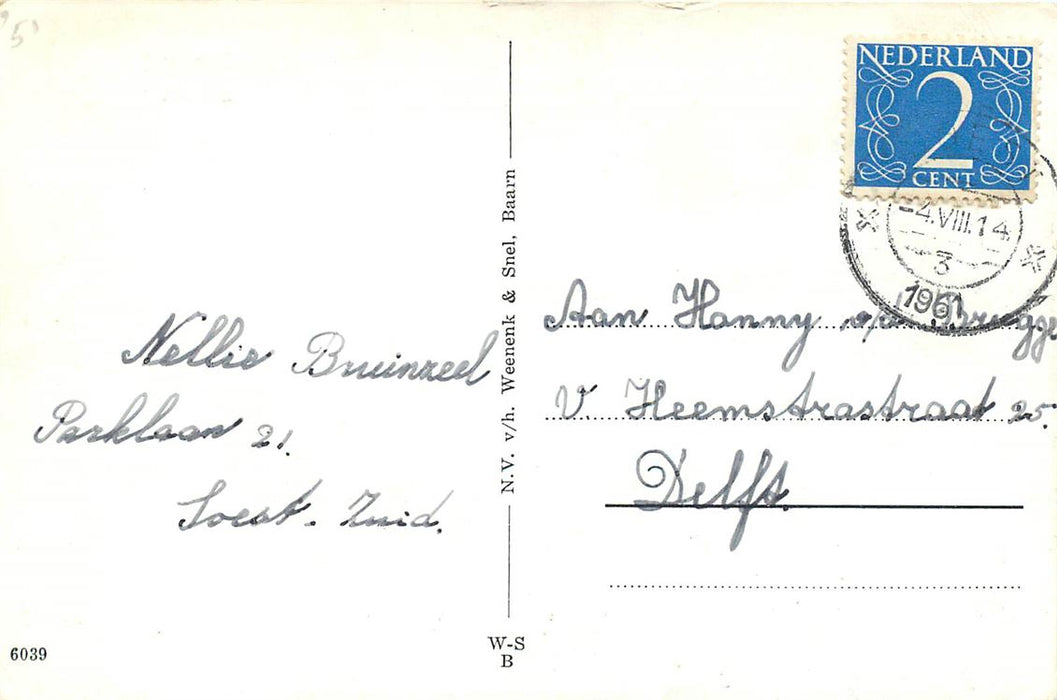 5
NEDERLAND
2
CENT
-4.VIII.14
3
1961
Nellie Bruinzeel
Parklaan 21.
Soest. Zuid.
N.V. v/h. Weenenk & Snel, Baarn
Aan Hanny op Brugge
V. Heemstrastraat 25.
Delft.
6039
W-S
B